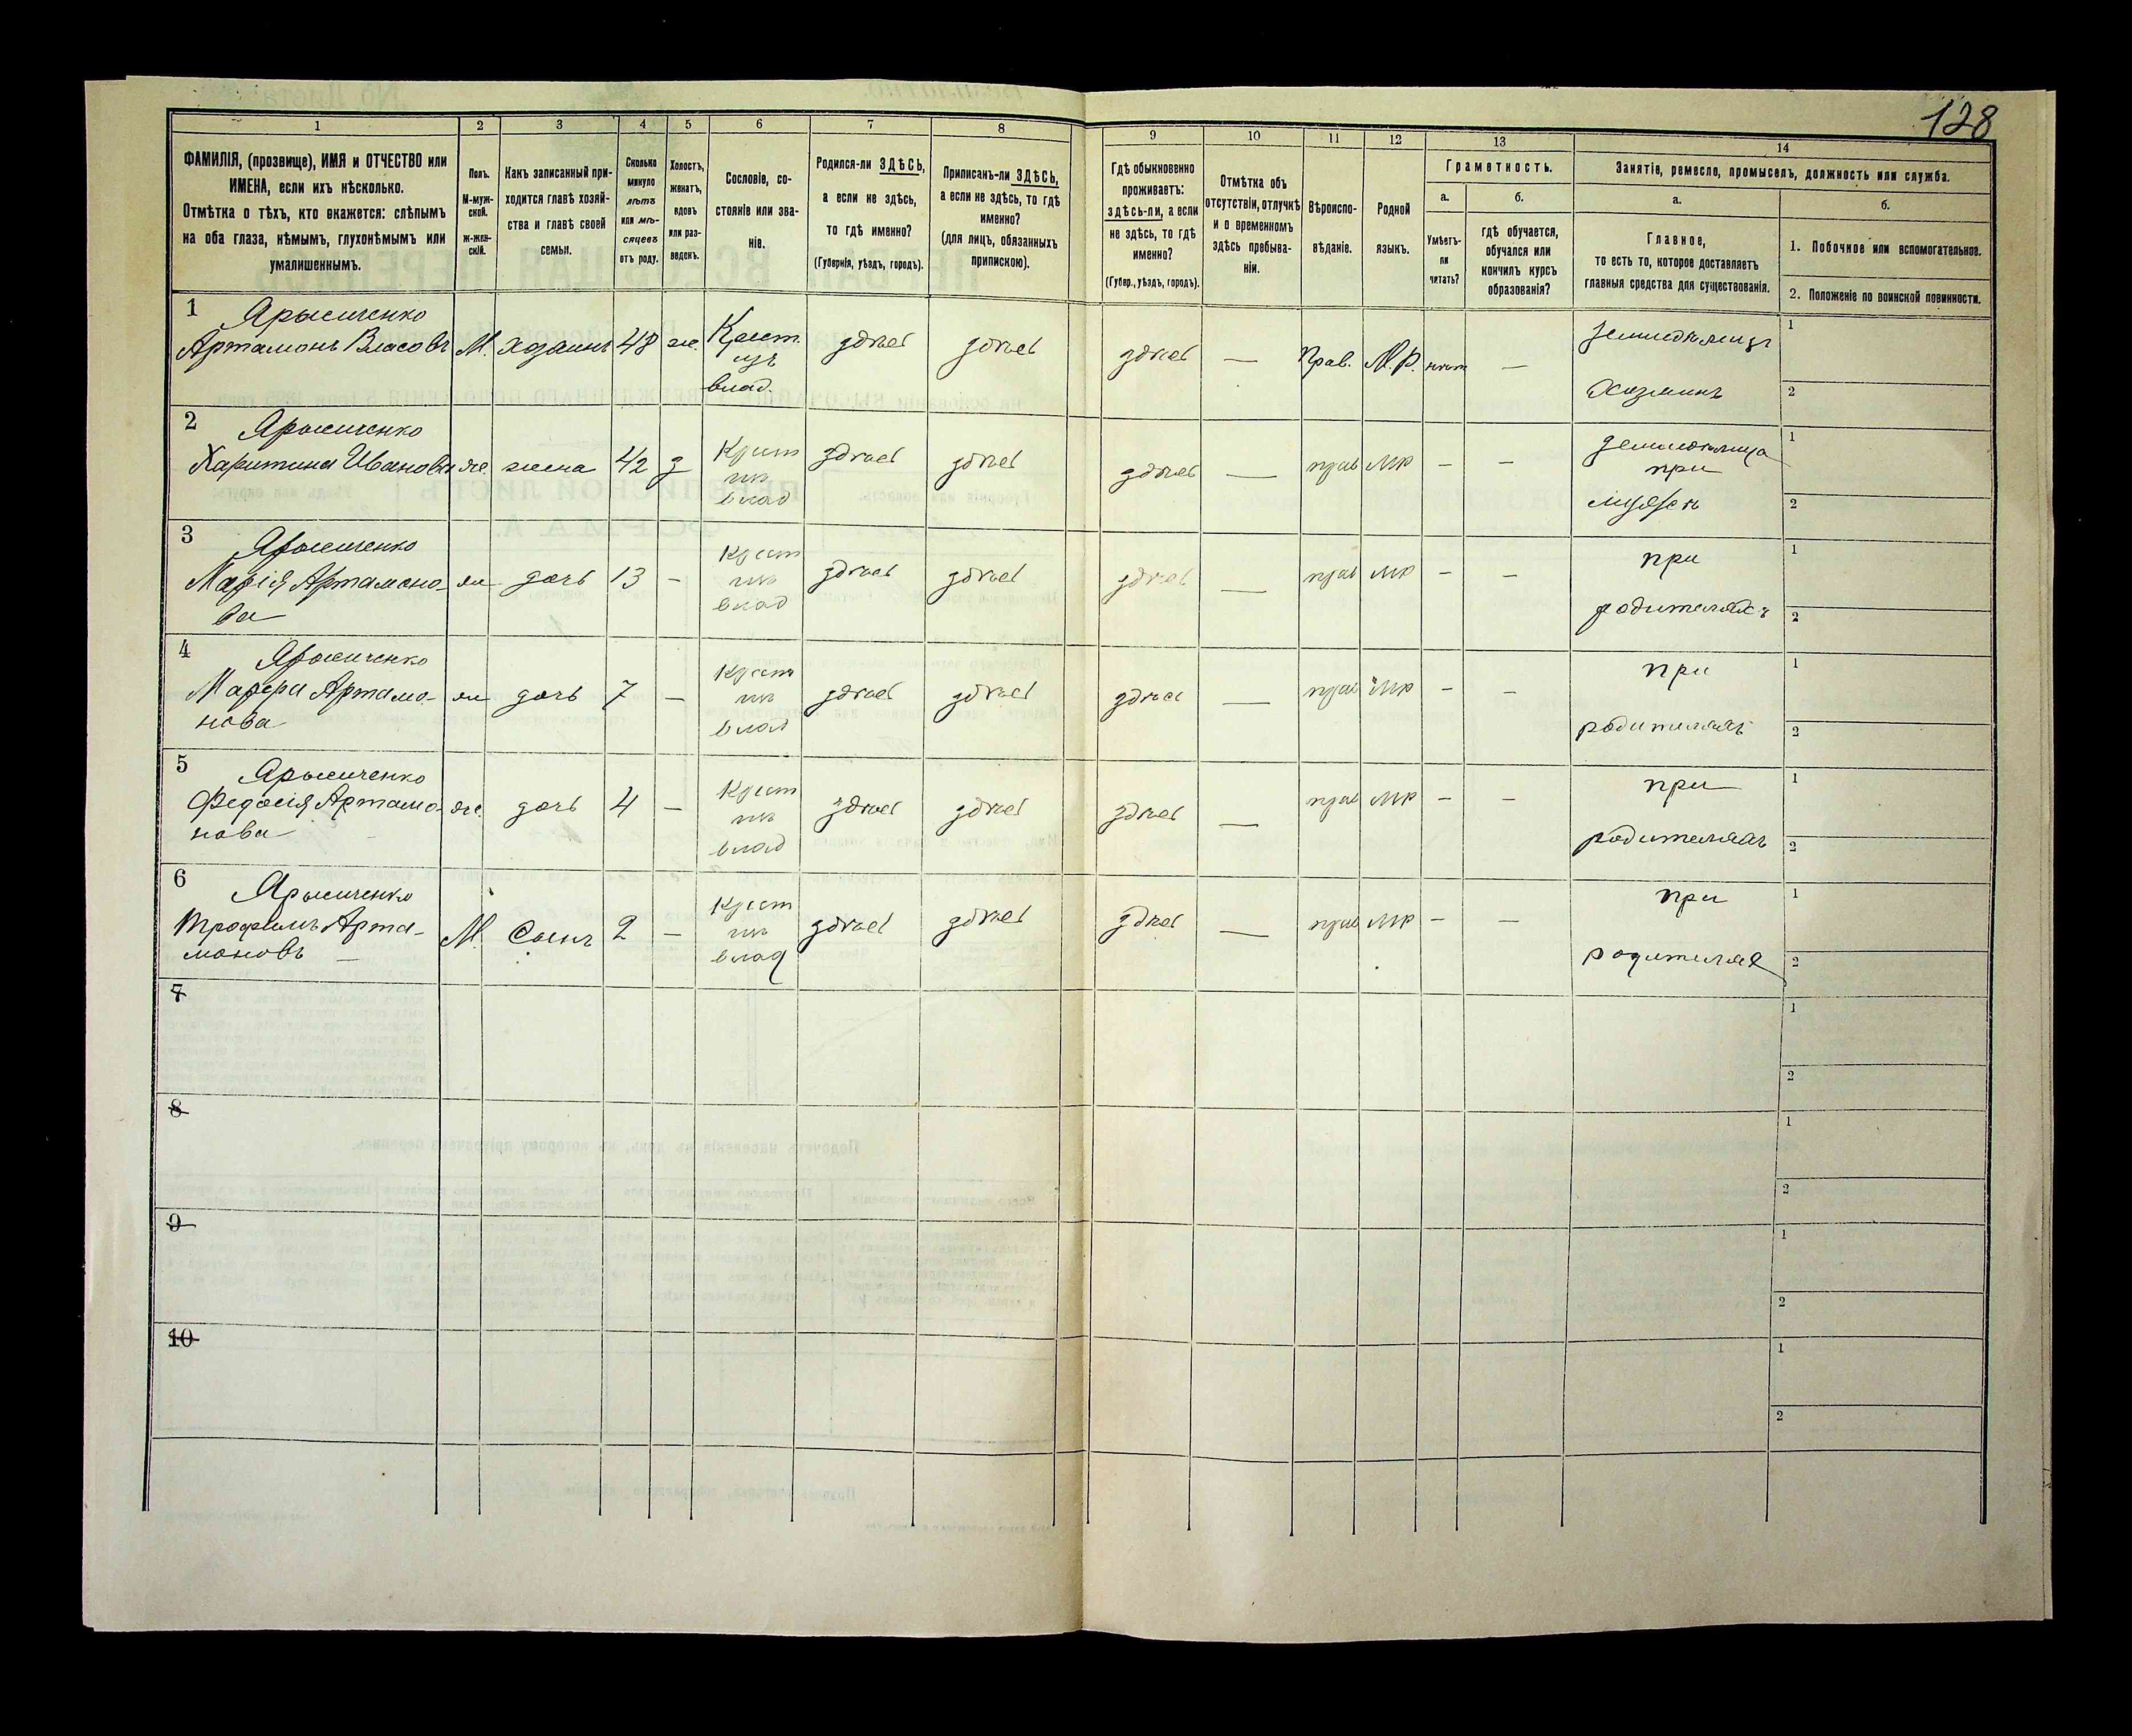 128
1 2 3 4 5 6 7 8 9 10 11 12 13 14
ФАМИЛІЯ, (прозвище), ИМЯ и ОТЧЕСТВО или
ИМЕНА, если ихъ нѣсколько.
Отмѣтка о тѣхъ, кто окажется: слѣпымъ
на оба глаза, нѣмымъ, глухонѣмымъ или
умалишеннымъ.
Полъ.
М-муж-
ской.
Ж-жен-
скій.
Какъ записанный при-
ходится главѣ хозяй-
ства и главѣ своей
семьи.
Сколько
минуло
лѣтъ
или мѣ-
сяцевъ
отъ роду.
Холостъ,
женатъ,
вдовъ
или раз-
веденъ.
Сословіе, со-
стояніе или зва-
ніе.
Родился-ли ЗДѢСЬ,
а если не здѣсь,
то гдѣ именно?
(Губернія, уѣздъ, городъ).
Приписанъ-ли ЗДѢСЬ,
а если не здѣсь, то гдѣ
именно?
(для лицъ, обязанныхъ
припискою).
Гдѣ обыкновенно
проживаетъ:
здѣсь-ли, а если
не здѣсь, то гдѣ
именно?
(Губер., уѣздъ, городъ).
Отмѣтка объ
отсутствіи, отлучкѣ
и о временномъ
здѣсь пребыва-
ніи.
Вѣроиспо-
вѣданіе.
Родной
языкъ.
Грамотность.
а.
Умѣетъ-
ли
читать?
б.
гдѣ обучается,
обучался или
кончилъ курсъ
образованія?
Занятіе, ремесло, промыселъ, должность или служба.
а.
Главное,
то есть то, которое доставляетъ
главныя средства для существованія.
б.
1. Побочное или вспомогательное.
2. Положеніе по воинской повинности.
1 Ярысиченко
Артамонъ Власовъ М. хозяинъ 48 ж. Крест. здѣсь здѣсь здѣсь — Прав. М.Р. нѣтъ — 1
изъ
влад. Хозяинъ 2
2 Ярысиченко
Харитина Иванова ж. жена 42 з Крест здѣсь здѣсь здѣсь — прав МР — — 1
при
влад 2
3 Ярысиченко
Марія Артамоно- ж дочь 13 — Крест здѣсь здѣсь здѣсь — прав МР — — при 1
ва влад родителяхъ 2
4 Ярысиченко
Артамо- ж дочь 7 — Крест здѣсь здѣсь здѣсь — прав МР — — при 1
нова влад родителяхъ 2
5 Ярысиченко
Федосія Артамо- ж. дочь 4 — Крест здѣсь здѣсь здѣсь — прав МР — — при 1
нова влад родителяхъ 2
6 Ярысиченко
Трофимъ Арта- М. Сынъ 2 — Крест здѣсь здѣсь здѣсь — прав МР — — при 1
моновъ — влад родителях 2
7 1
2
8 1
2
9 1
2
10 1
2